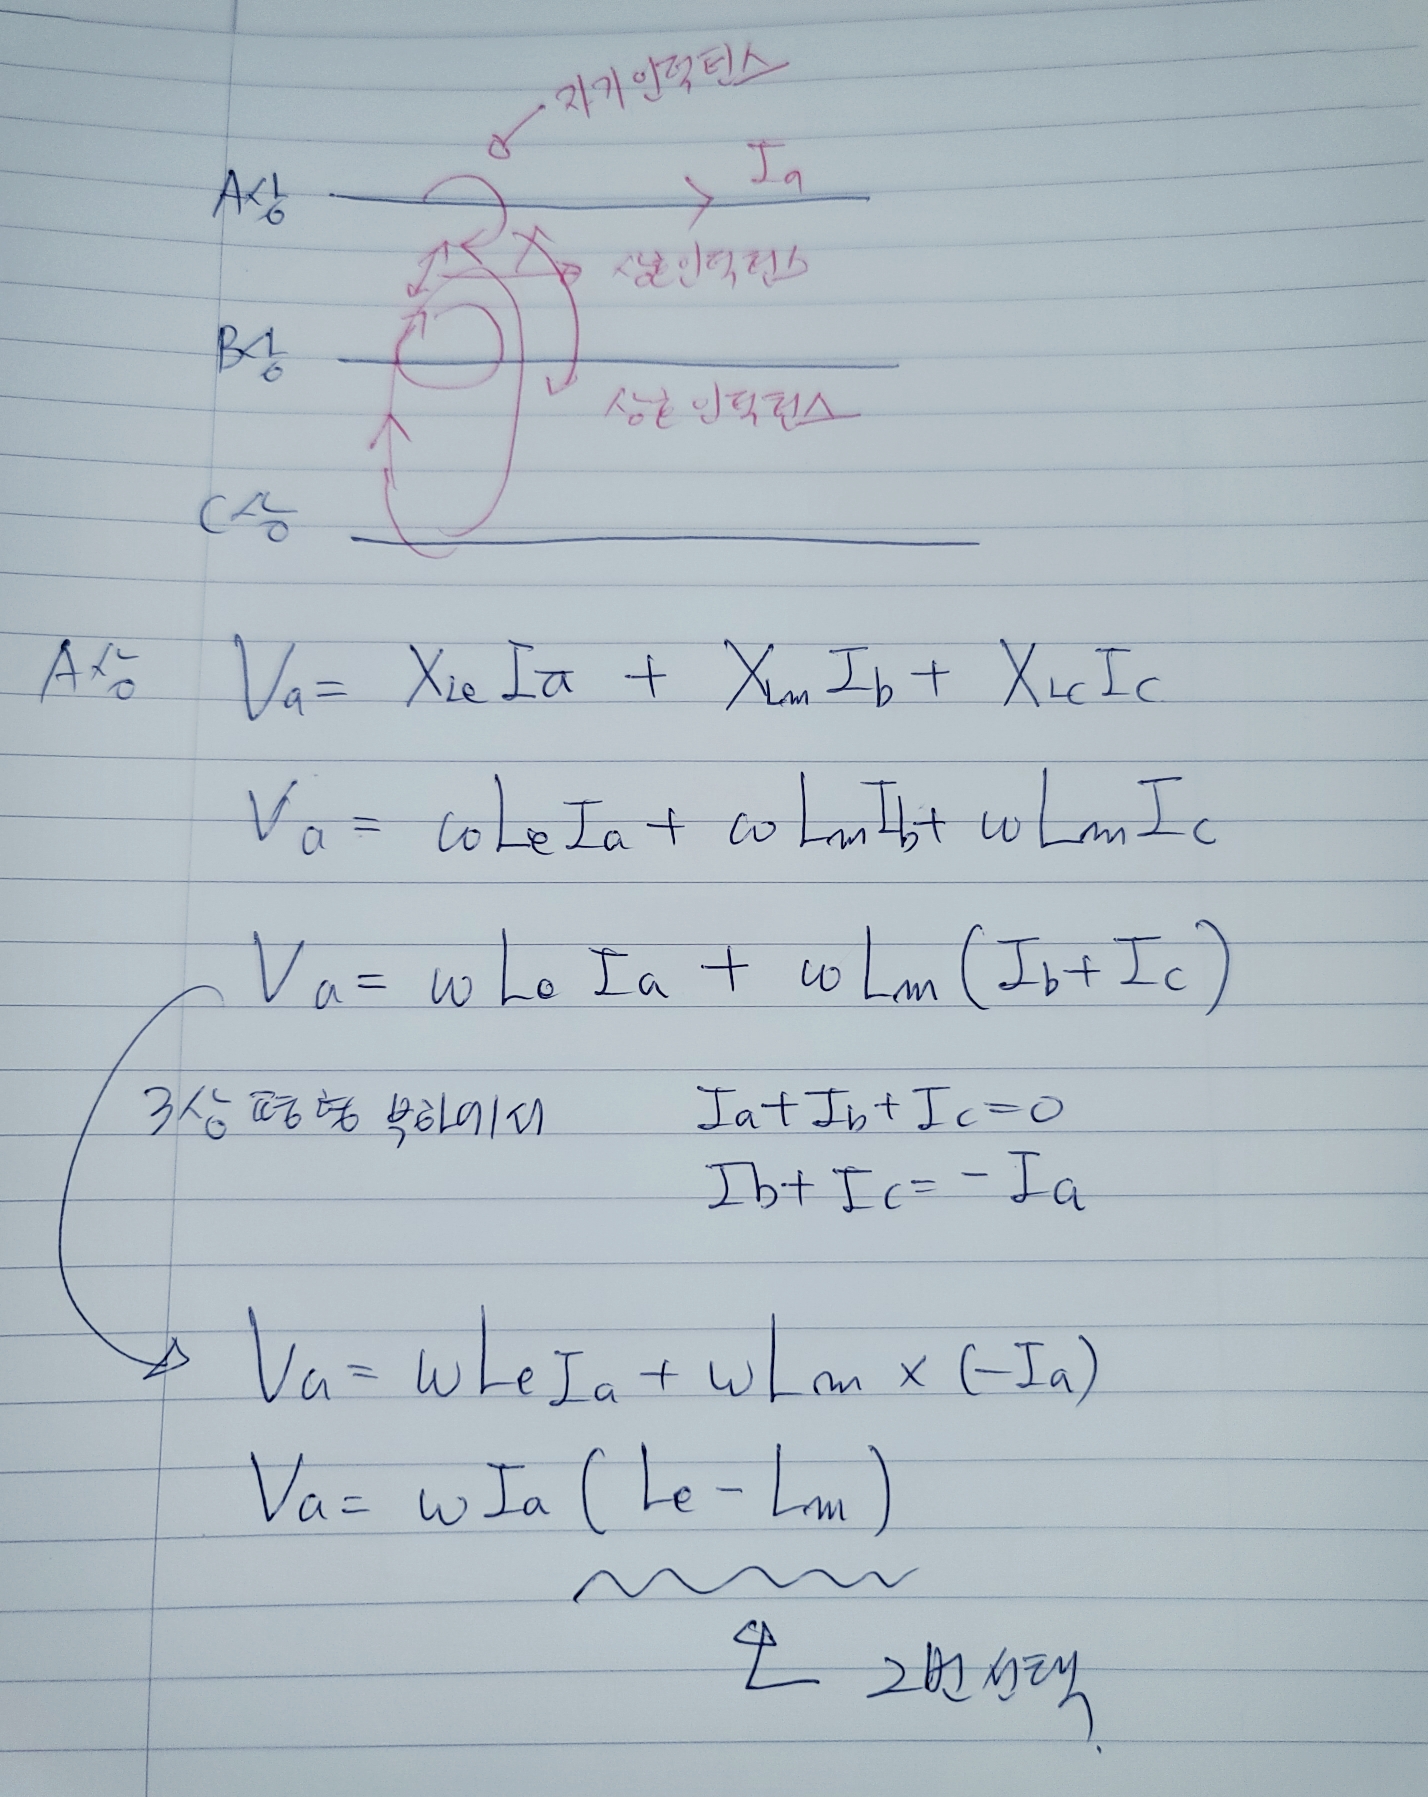 자기인덕턴스
A상
Ia
상호인덕턴스
B상
상호인덕턴스
C상
A상 Va= XLe Ia + XLm Ib + XLc Ic
Va = ωLe Ia + ωLm Ib + ωLm Ic
Va = ωLe Ia + ωLm (Ib + Ic)
3상 평형 부하에서 Ia + Ib + Ic = 0
Ib + Ic = - Ia
Va = ωLe Ia + ωLm × (-Ia)
Va = ωIa (Le - Lm)
2번 선택.